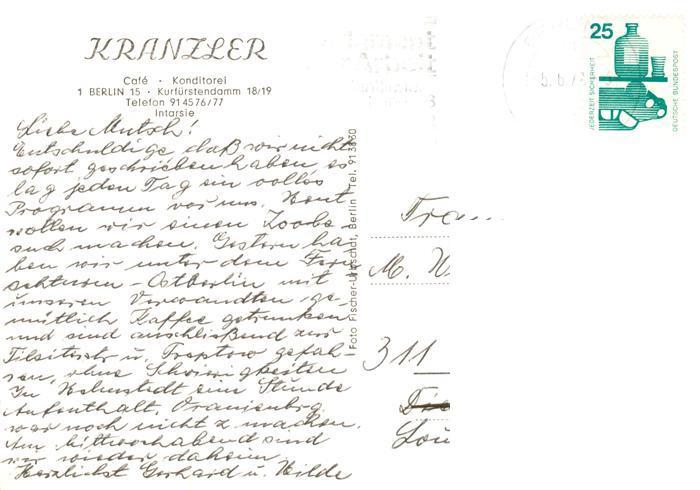 KRANZLER
Café · Konditorei
1 BERLIN 15 · Kurfürstendamm 18/19
Telefon 914576/77
Intarsie
Liebe Mutsch!
Entschuldige daß wir nicht
sofort geschrieben haben, es
lag jeden Tag ein volles
Programm vor uns. Heut
wollen wir einen Zoobe-
such machen. Gestern ha-
ben wir unter dem Fern-
sehturm - Ostberlin mit
unseren Verwandten ge-
mütlich Kaffee getrunken
und sind anschließend zur
Tilsiterstr u. Treptow gefah-
ren, ohne Schwierigkeiten
In Helmstedt eine Stunde
Aufenthalt. Oranienburg
war noch nicht z machen.
Am Mittwochabend sind
wir wieder daheim.
Herzlichst Gerhard u. Hilde
Foto Fischer- Berlin Tel. 913860
25
JEDERZEIT SICHERHEIT
DEUTSCHE BUNDESPOST
5.6.7
M. W
311